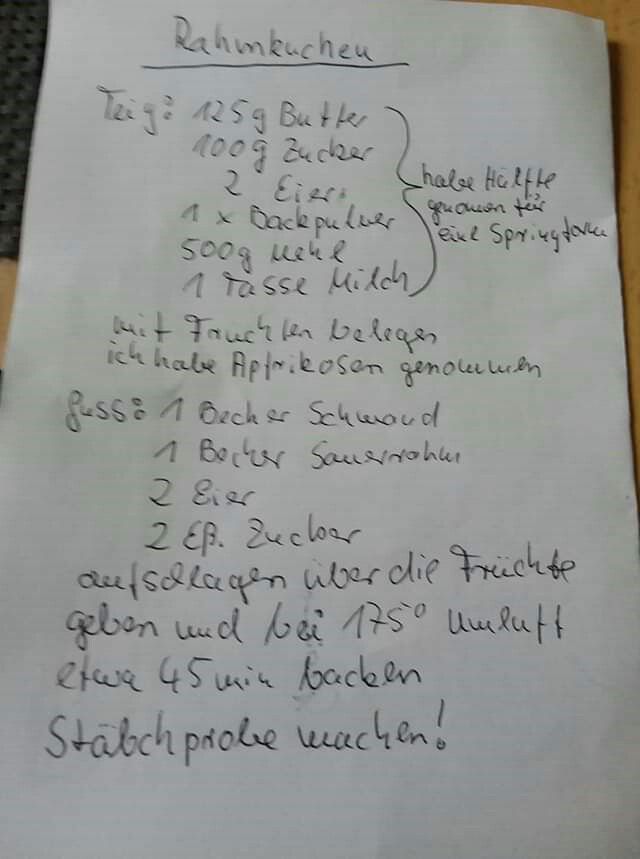 Rahmkuchen
Teig: 125g Butter
100g Zucker
2 Eier
1 x Backpulver
500g Mehl
1 Tasse Milch
halbe Hälfte
genomen für
eine Springform
mit Früchten belegen
ich habe Apfrikosen genommen
Guss: 1 Becher Schmand
1 Becher Sauerrahm
2 Eier
2 Eß. Zucker
aufschlagen über die Früchte
geben und bei 175° Umluft
etwa 45 min backen
Stäbchprobe machen!